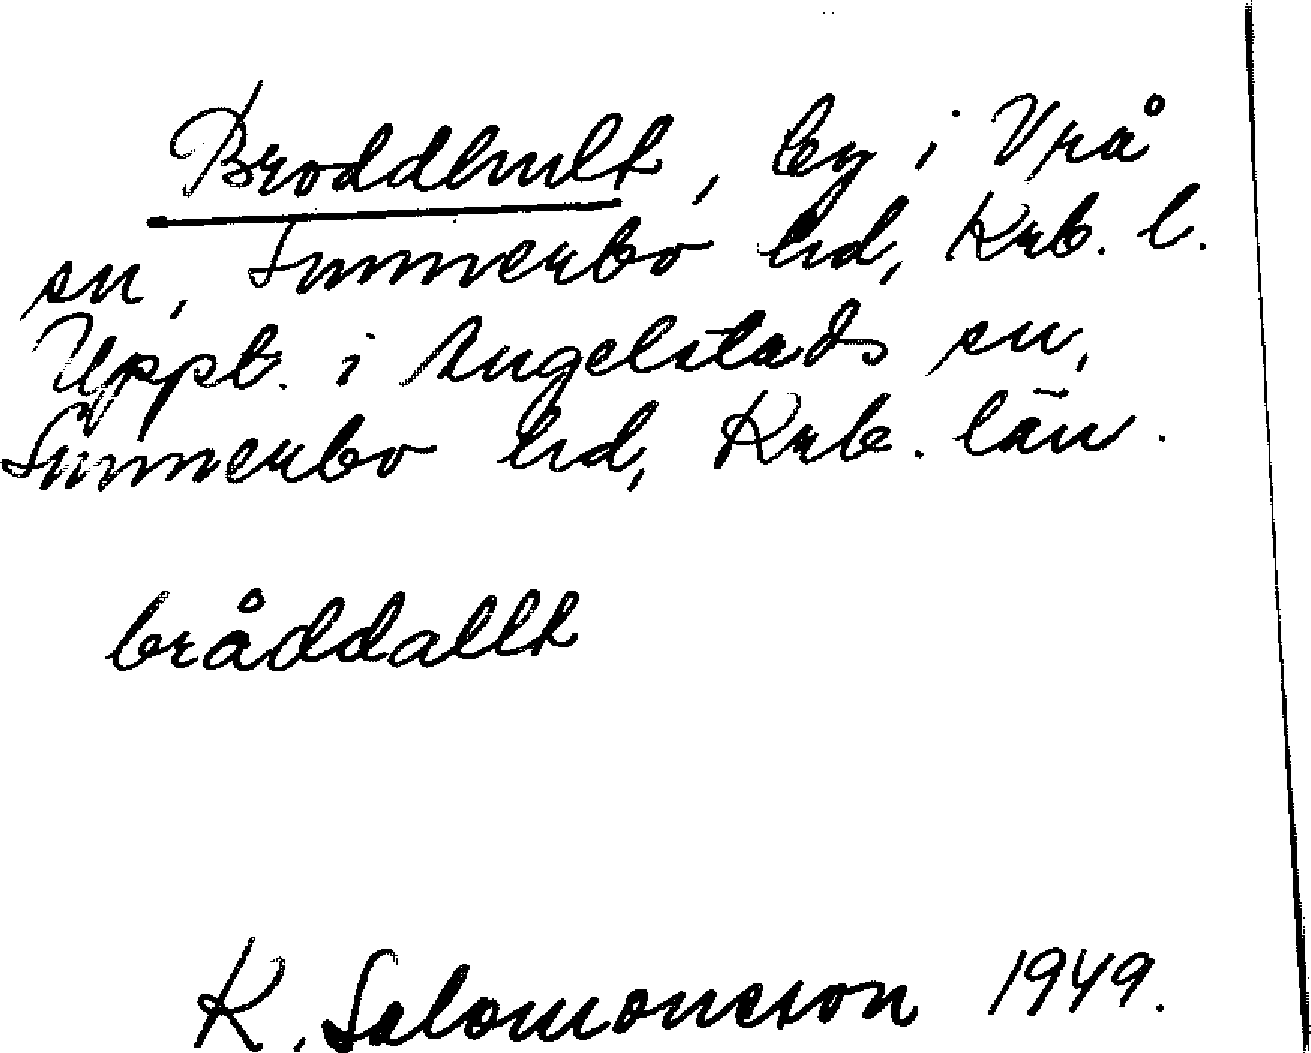 Broddhult, by i Vrå
sn, Sunnerbo hd, Krb. l.
Uppt. i Angelstads sn,
Sunnerbo hd, Krb. län.
bråddallt
K. Salomonsson 1949.